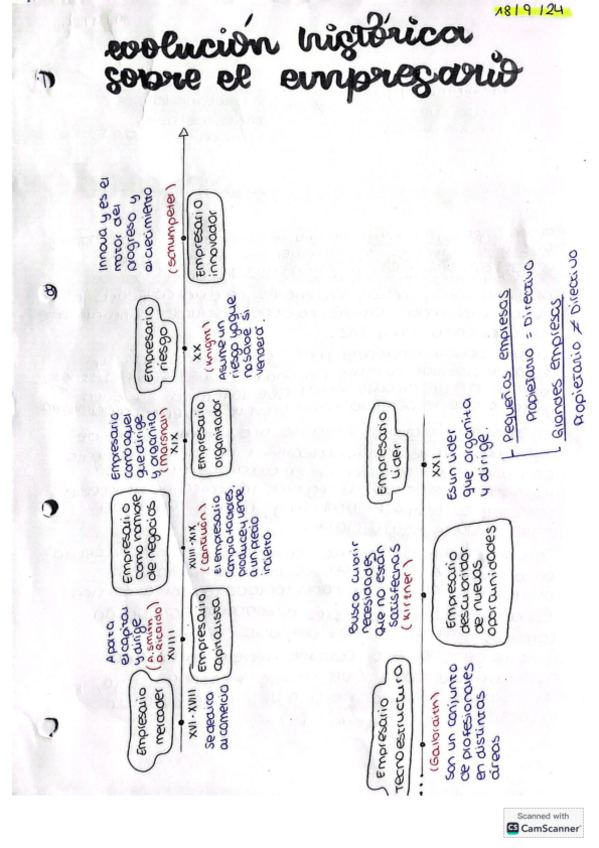 18/9/24
evolución histórica
sobre el empresario
Empresario
mercader
XVI - XVIII
Se dedica
al comercio
Aporta
el capital
y dirige
(A.Smith
D.Ricardo)
XVIII
Empresario
capitalista
Empresario
como hombre
de negocios
XVIII - XIX
(Cantillón)
El empresario
compra factores,
produce y vende
a un precio
incierto
Empresario
como aquel
que dirige
y organita
(Marshall)
XIX
Empresario
organitador
Empresario
riesgo
XX
(Knight)
Asume un
riesgo ya que
no sabe si
venderá.
Innova y es el
motor del
progreso y
el crecimiento
(schumpeter)
Empresario
innovador
Empresario
Tecnoestructura
(Galbraith)
Son un conjunto
de profesionales
en distintas
áreas
Busca cubrir
necesidades
que no están
satisfechas
(Kirtner)
Empresario
descubridor
de nuevas
oportunidades
Empresario
Líder
XXI
Es un líder
que organita
y dirige.
Pequeñas empresas
Propietario = Directivo
Grandes empresas
Propietario ≠ Directivo
Scanned with
CS CamScanner